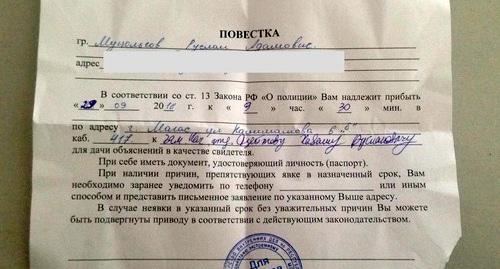 ПОВЕСТКА
гр. Руслан Адамович
адрес
В соответствии со ст. 13 Закона РФ «О полиции» Вам надлежит прибыть
«29» 09 2018 г. к « 9 » час. « 30 » мин. в
по адресу г. Магас ул. 6 "а"
каб. 417 к
для дачи объяснений в качестве свидетеля.
При себе иметь документ, удостоверяющий личность (паспорт).
При наличии причин, препятствующих явке в назначенный срок, Вам
необходимо заранее уведомить по телефону или иным
способом и представить письменное заявление по указанному Выше адресу.
В случае неявки в указанный срок без уважительных причин Вы можете
быть подвергнуты приводу в соответствии с действующим законодательством.
Для